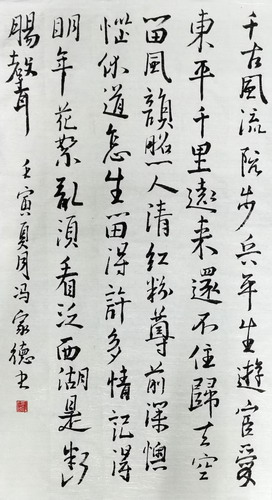 千古風流阮步兵平生遊宦愛
東平千里遠來還不住歸去空
留風韻照人清紅粉尊前深懊
惱休道怎生留得許多情記得
明年花絮亂須看泛西湖是斷
腸聲 壬寅夏月冯家德书